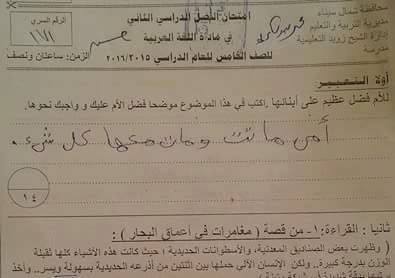 محافظة شمال سيناء
مديرية التربية والتعليم
إدارة الشيخ زويد التعليمية
مدرسة
امتحان الفصل الدراسي الثاني
في مادة اللغة العربية
للصف الخامس للعام الدراسي ٢٠١٦/٢٠١٥
الزمن: ساعتان ونصف
الرقم السري
أولا التعبير
للأم فضل عظيم على أبنائها. اكتب في هذا الموضوع موضحا فضل الأم عليك و واجبك نحوها.
أمي ماتت ومات معها كل شيء.
١٤
ثانيا : القراءة: ١- من قصة ( مغامرات في أعماق البحار ) :
( وظهرت بعض الصناديق المعدنية، والأسطوانات الحديدية ؛ حيث كانت هذه الأشياء كلها ثقيلة
الوزن بدرجة كبيرة.. ولكن الإنسان الآلي حملها بين اثنتين من أذرعه الحديدية بسهولة ويسر.. وأخذ